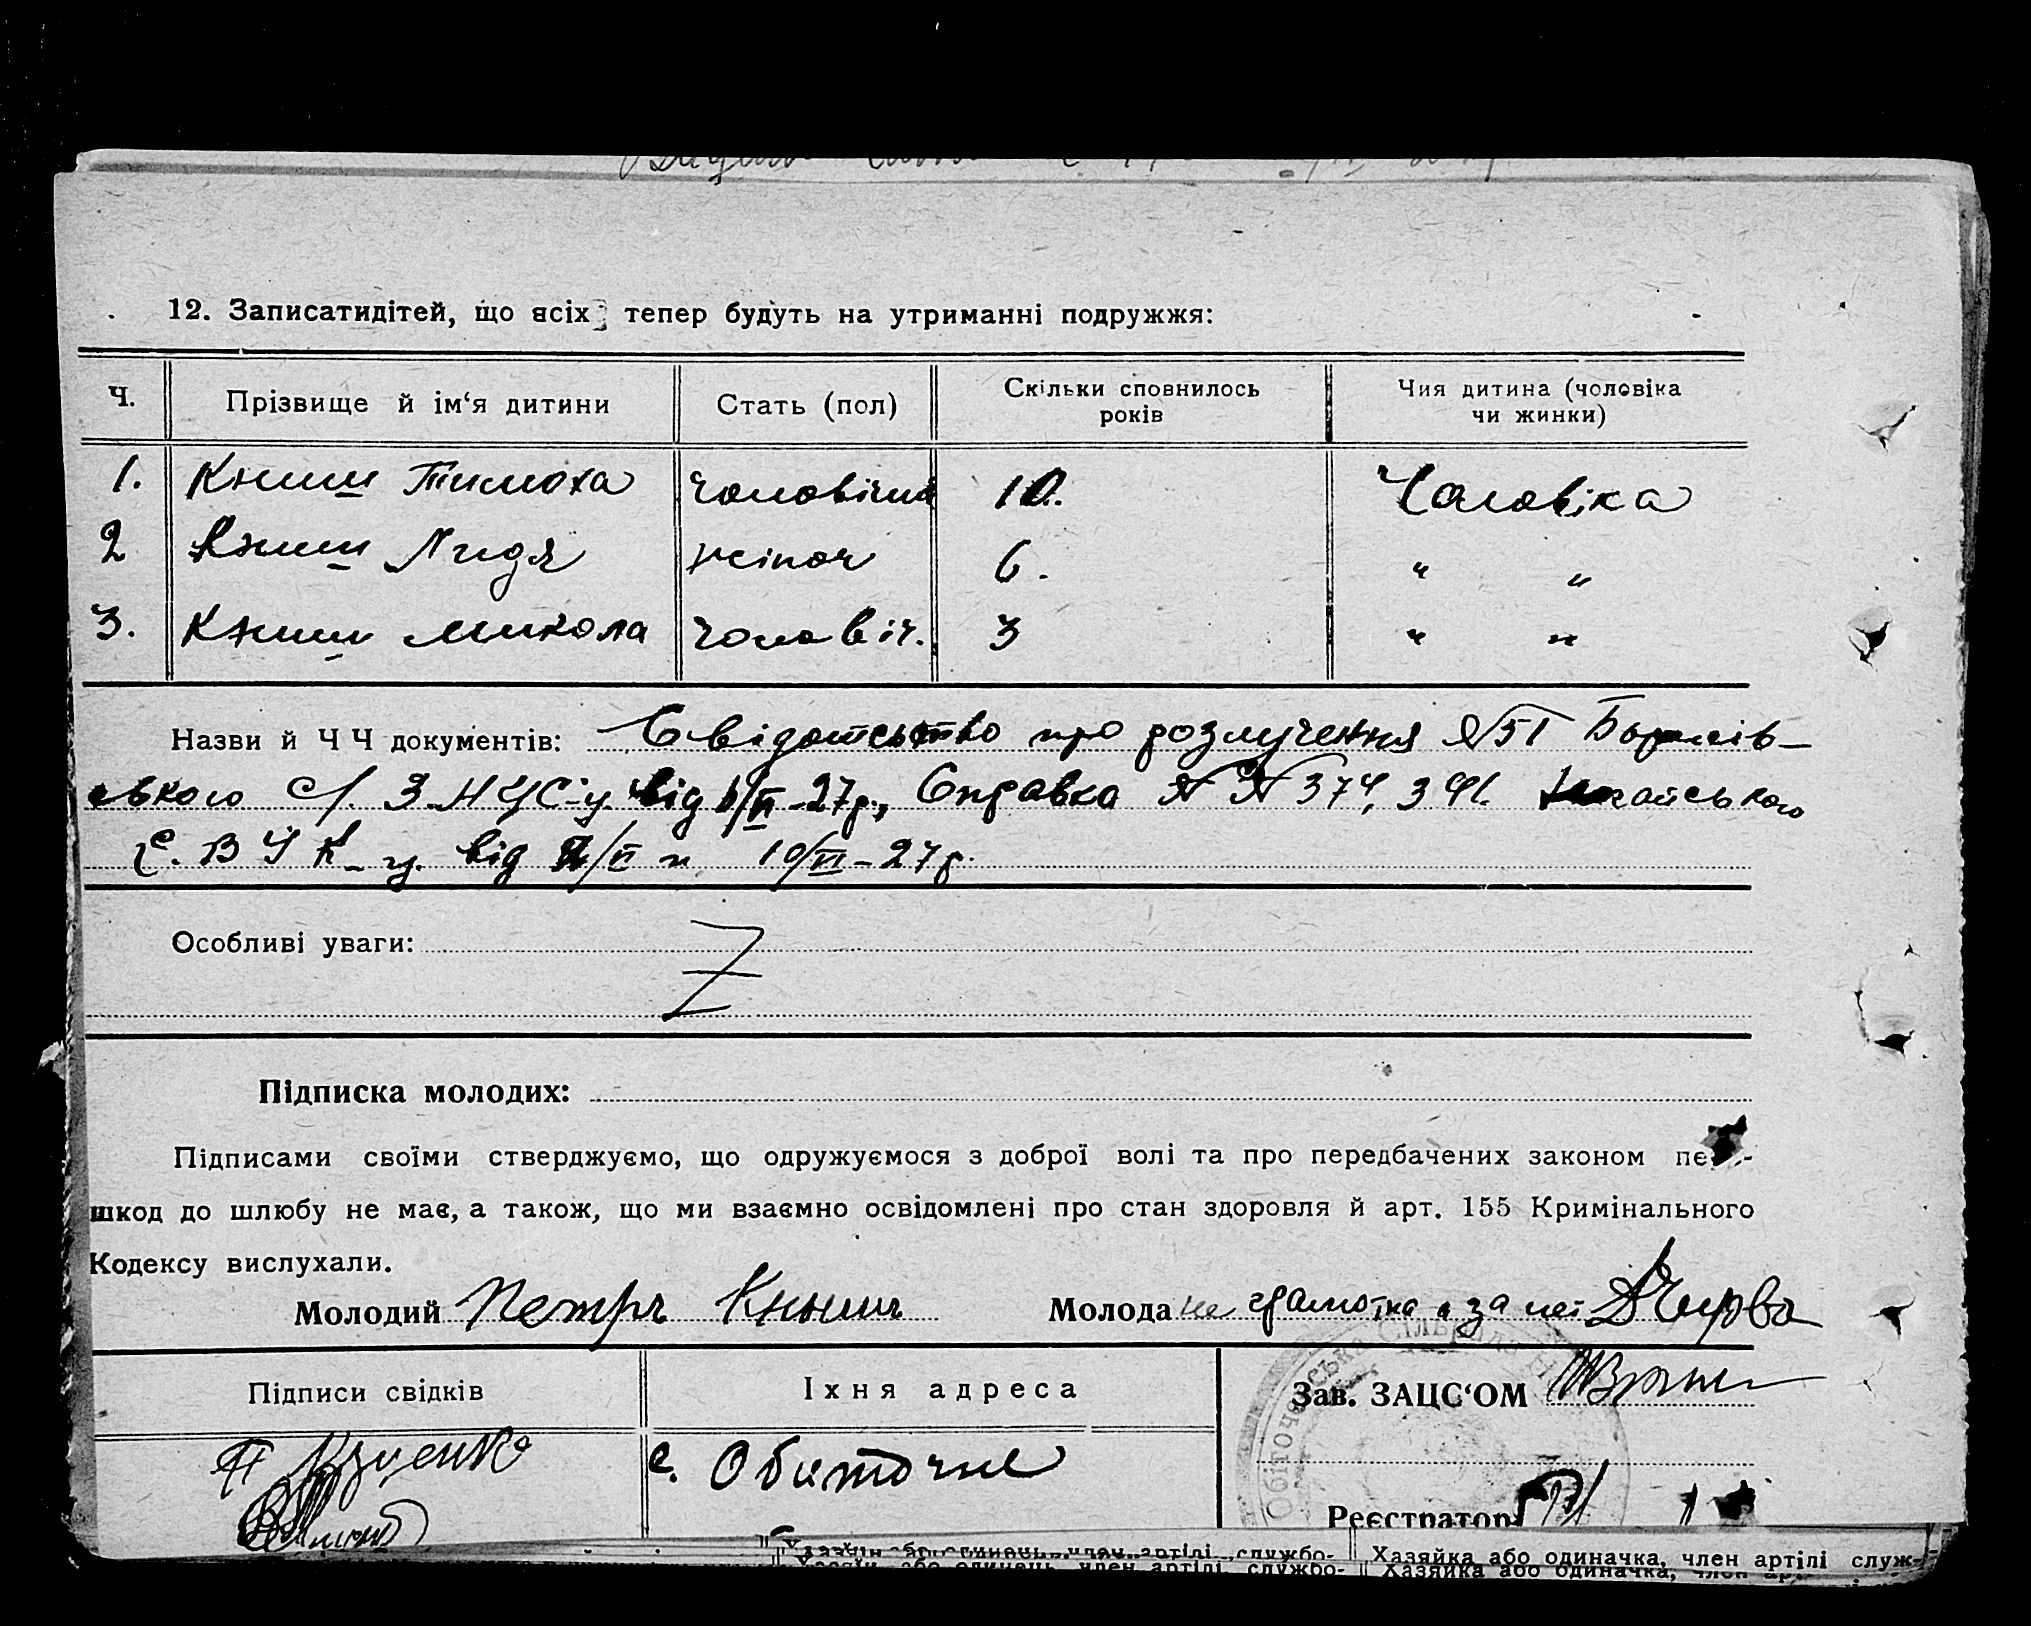 12. Записатидітей, що всіх тепер будуть на утриманні подружжя:
Ч. Прізвище й ім‘я дитини Стать (пол) Скільки сповнилось років Чия дитина (чоловіка чи жинки)
1. Книш Тимоха чоловіча 10. Чоловіка
2 Книш Лидя жіноч 6. " "
3. Книш Микола чоловіч. 3 " "
Назви й Ч Ч документів: Свідотство про розлучення №51
ського с/. ЗАЦС-у від /VI-27р., Справка №№ 374, 391.
С. В У К-у. від /VI и 10/VI-27р.
Особливі уваги: Z
Підписка молодих:
Підписами своїми стверджуємо, що одружуємося з доброї волі та про передбачених законом пе
шкод до шлюбу не має, а також, що ми взаємно освідомлені про стан здоровля й арт. 155 Кримінального
Кодексу вислухали.
Молодий Петръ Кныш Молода не грамотна за неї
Підписи свідків Їхня адреса Зав. ЗАЦС‘ОМ
с. Обиточне
Реєстратор
Обіточенська Сільрада
Хазяїн або одинець, член артілі, службо- Хазяйка або одиначка, член артілі служ-